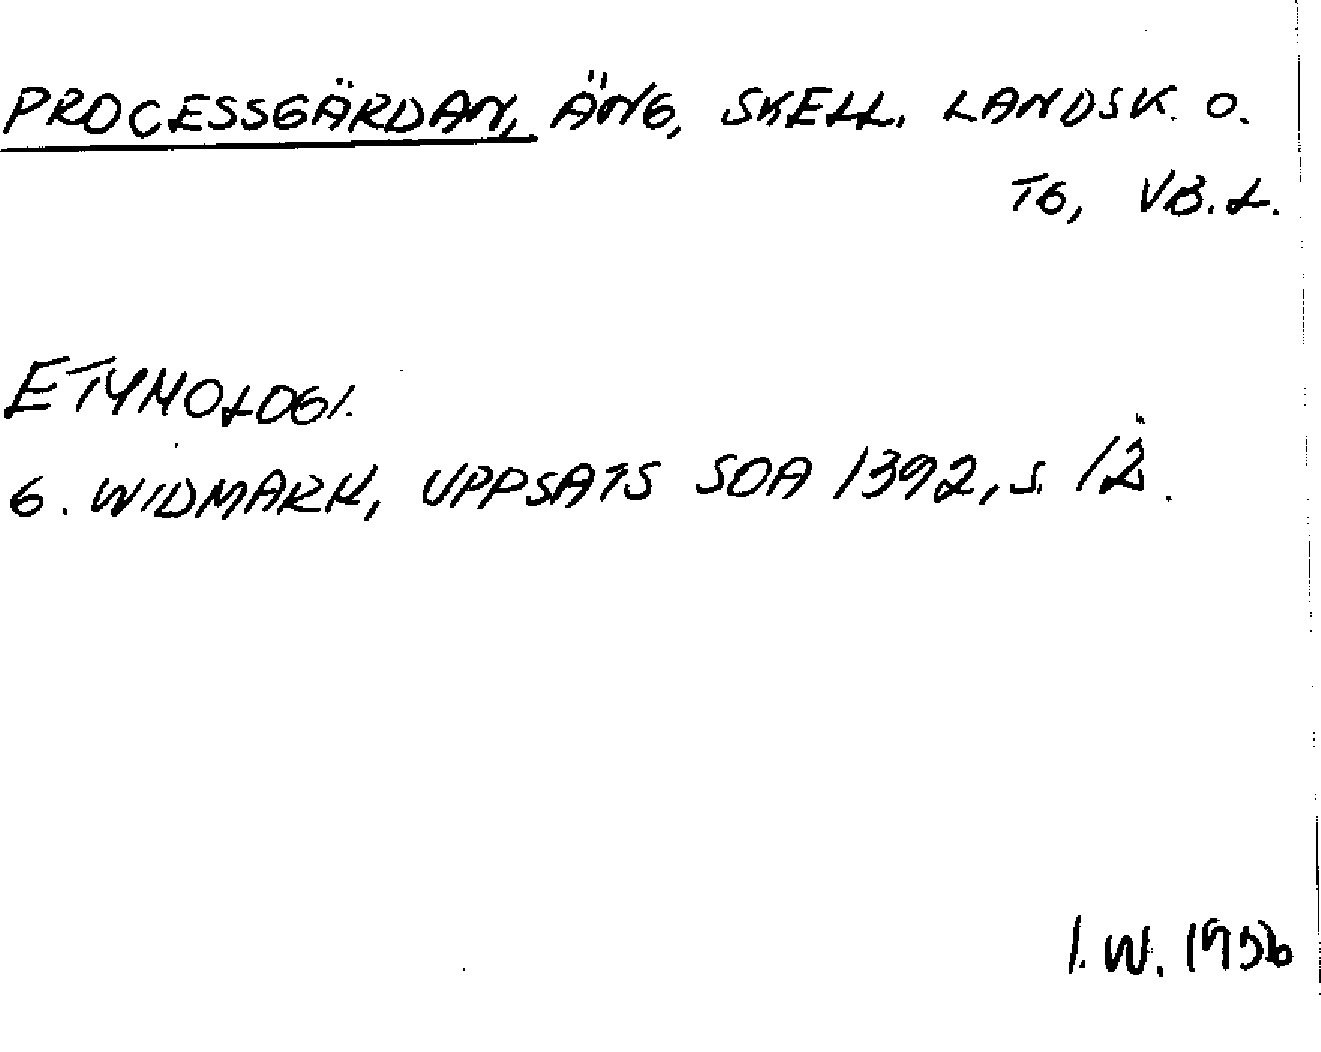 PROCESSGÄRDAN, ÄNG, SKELL. LANDSK. O.
TG, VB.L.
ETYMOLOGI.
G. WIDMARK, UPPSATS SOA 1392, S. 12.
I. W. 1956